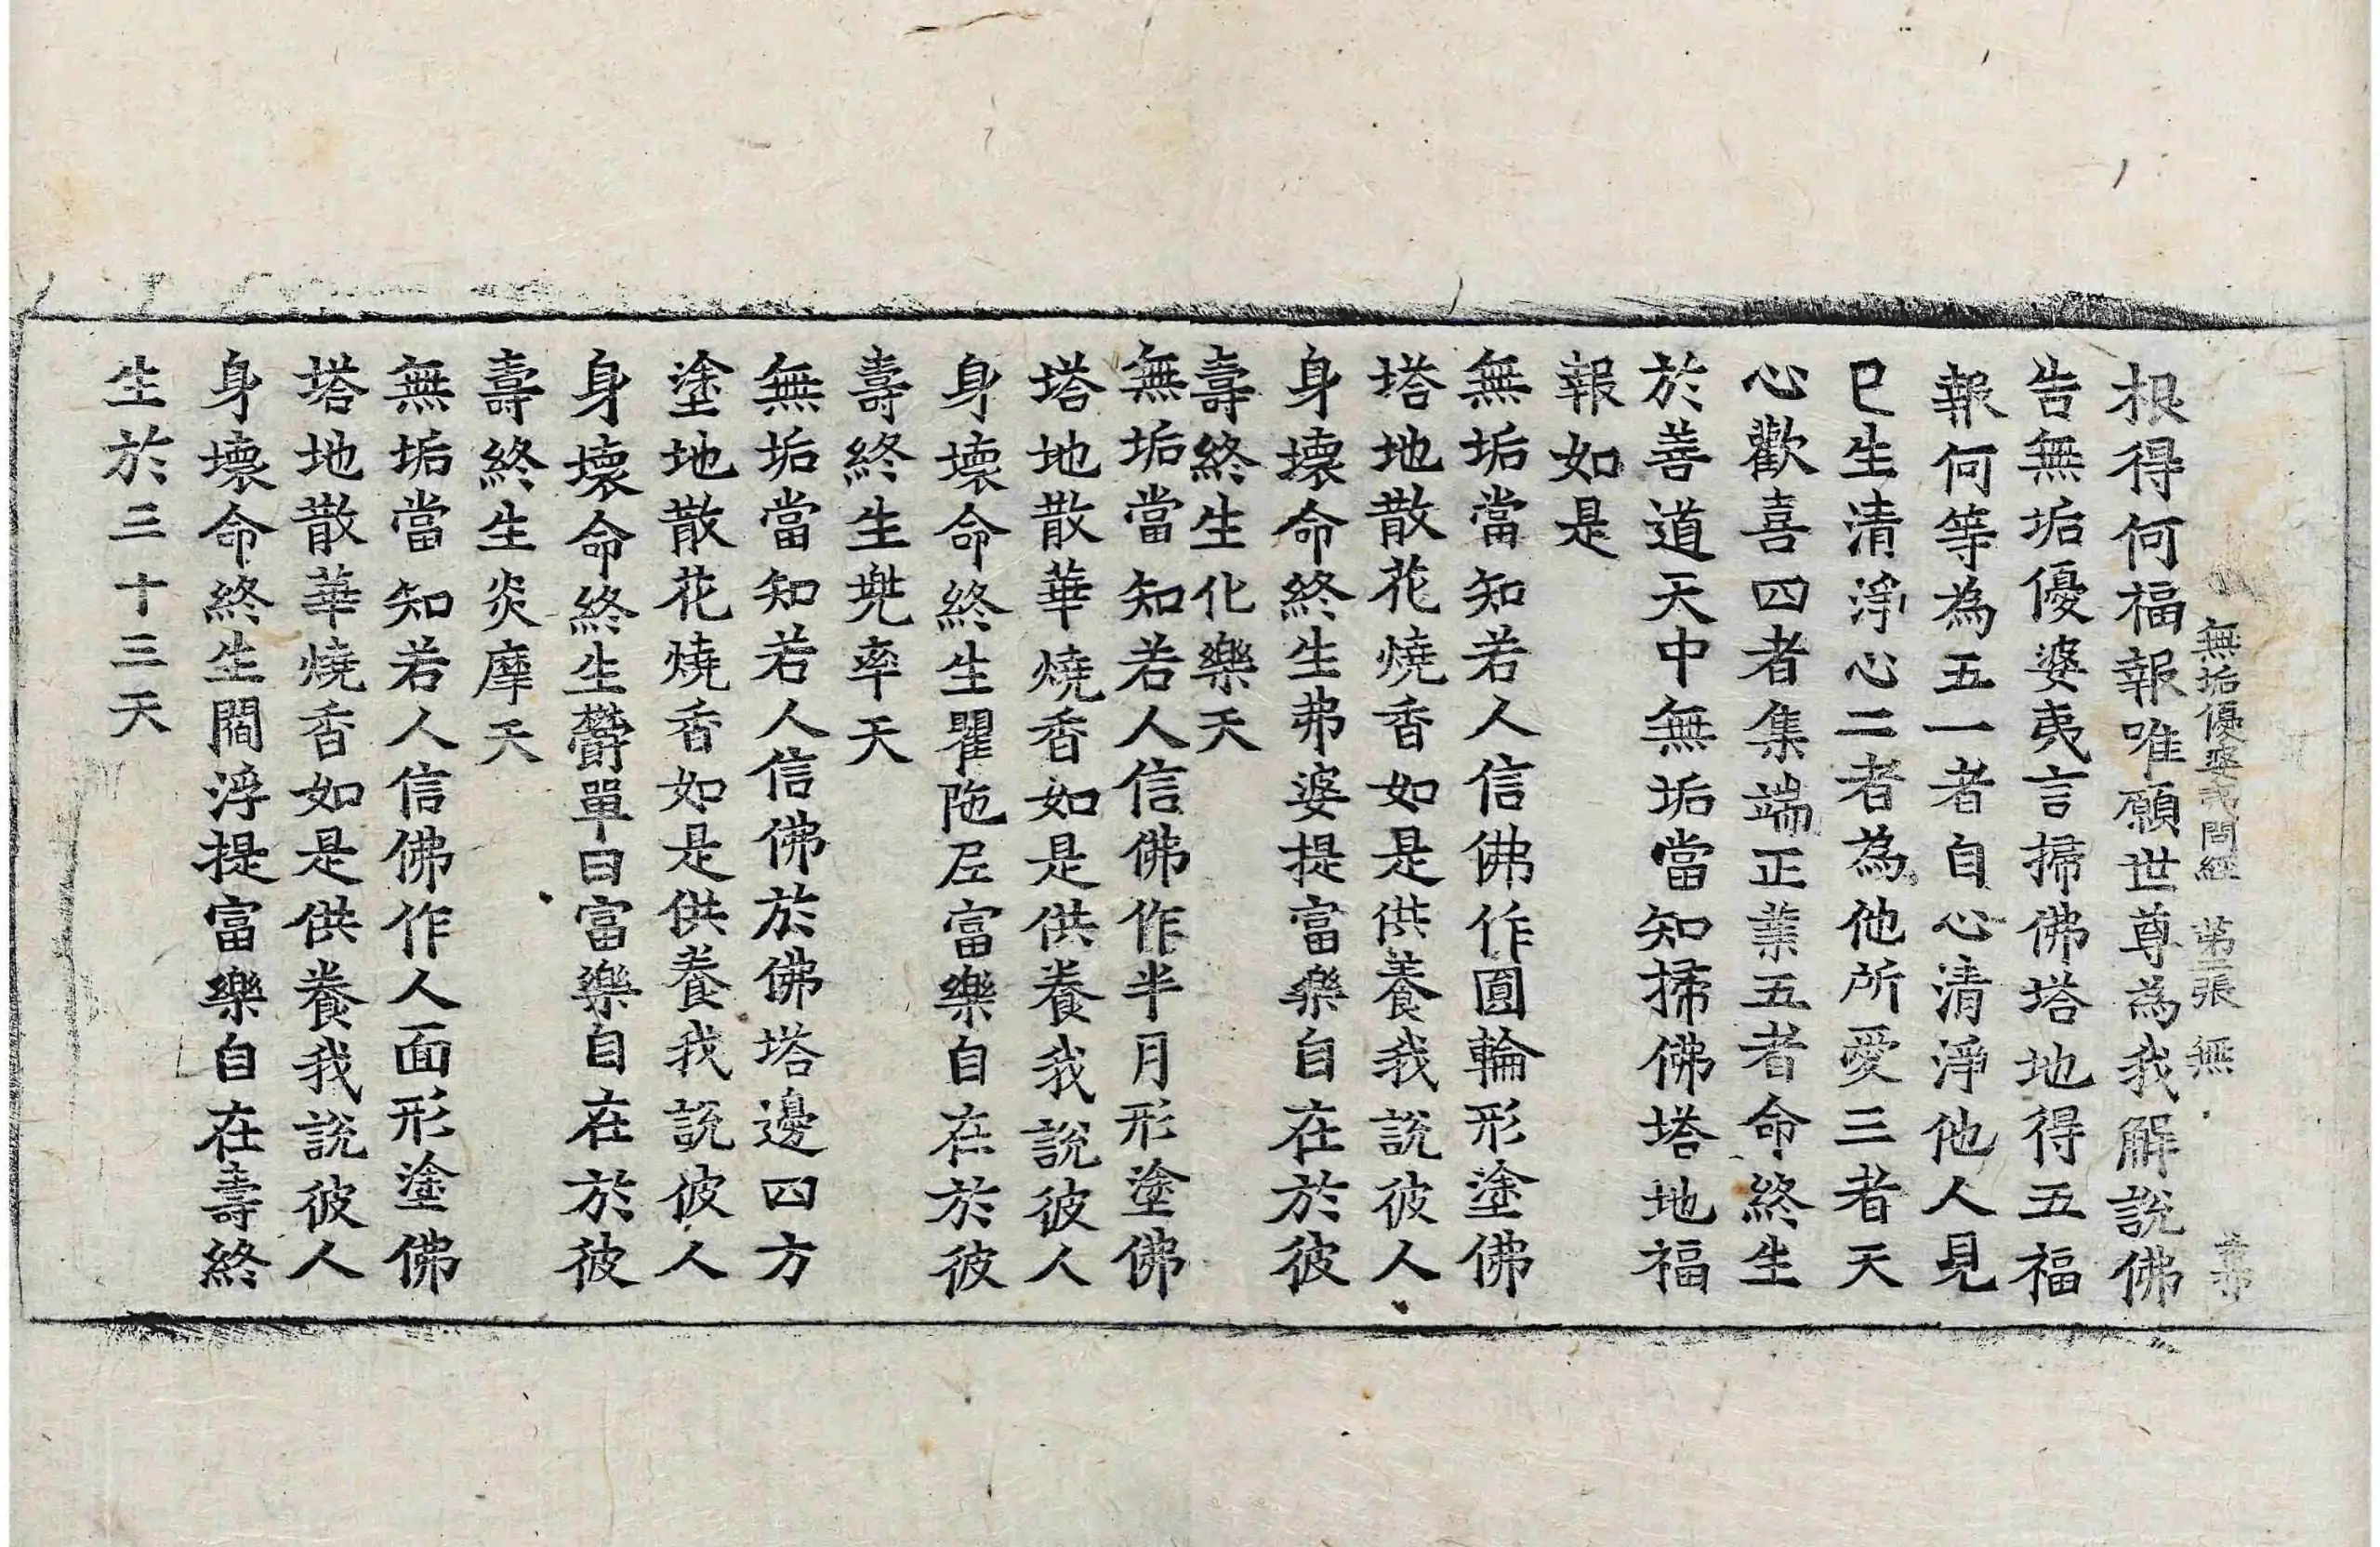 無垢優婆夷問經 第二張 無
报得何福報唯願世尊為我解說佛
告無垢優婆夷言掃佛塔地得五福
報何等為五一者自心清淨他人見
已生清淨心二者為他所愛三者天
心歡喜四者集端正業五者命終生
於善道天中無垢當知掃佛塔地福
報如是
無垢當知若人信佛作圓輪形塗佛
塔地散花燒香如是供養我說彼人
身壞命終生弗婆提富樂自在於彼
壽終生化樂天
無垢當知若人信佛作半月形塗佛
塔地散華燒香如是供養我說彼人
身壞命終生瞿陁尼富樂自在於彼
壽終生兠率天
無垢當知若人信佛於佛塔邊四方
塗地散花燒香如是供養我說彼人
身壞命終生欝單曰富樂自在於彼
壽終生炎摩天
無垢當知若人信佛作人面形塗佛
塔地散華燒香如是供養我說彼人
身壞命終生閻浮提富樂自在壽終
生於三十三天